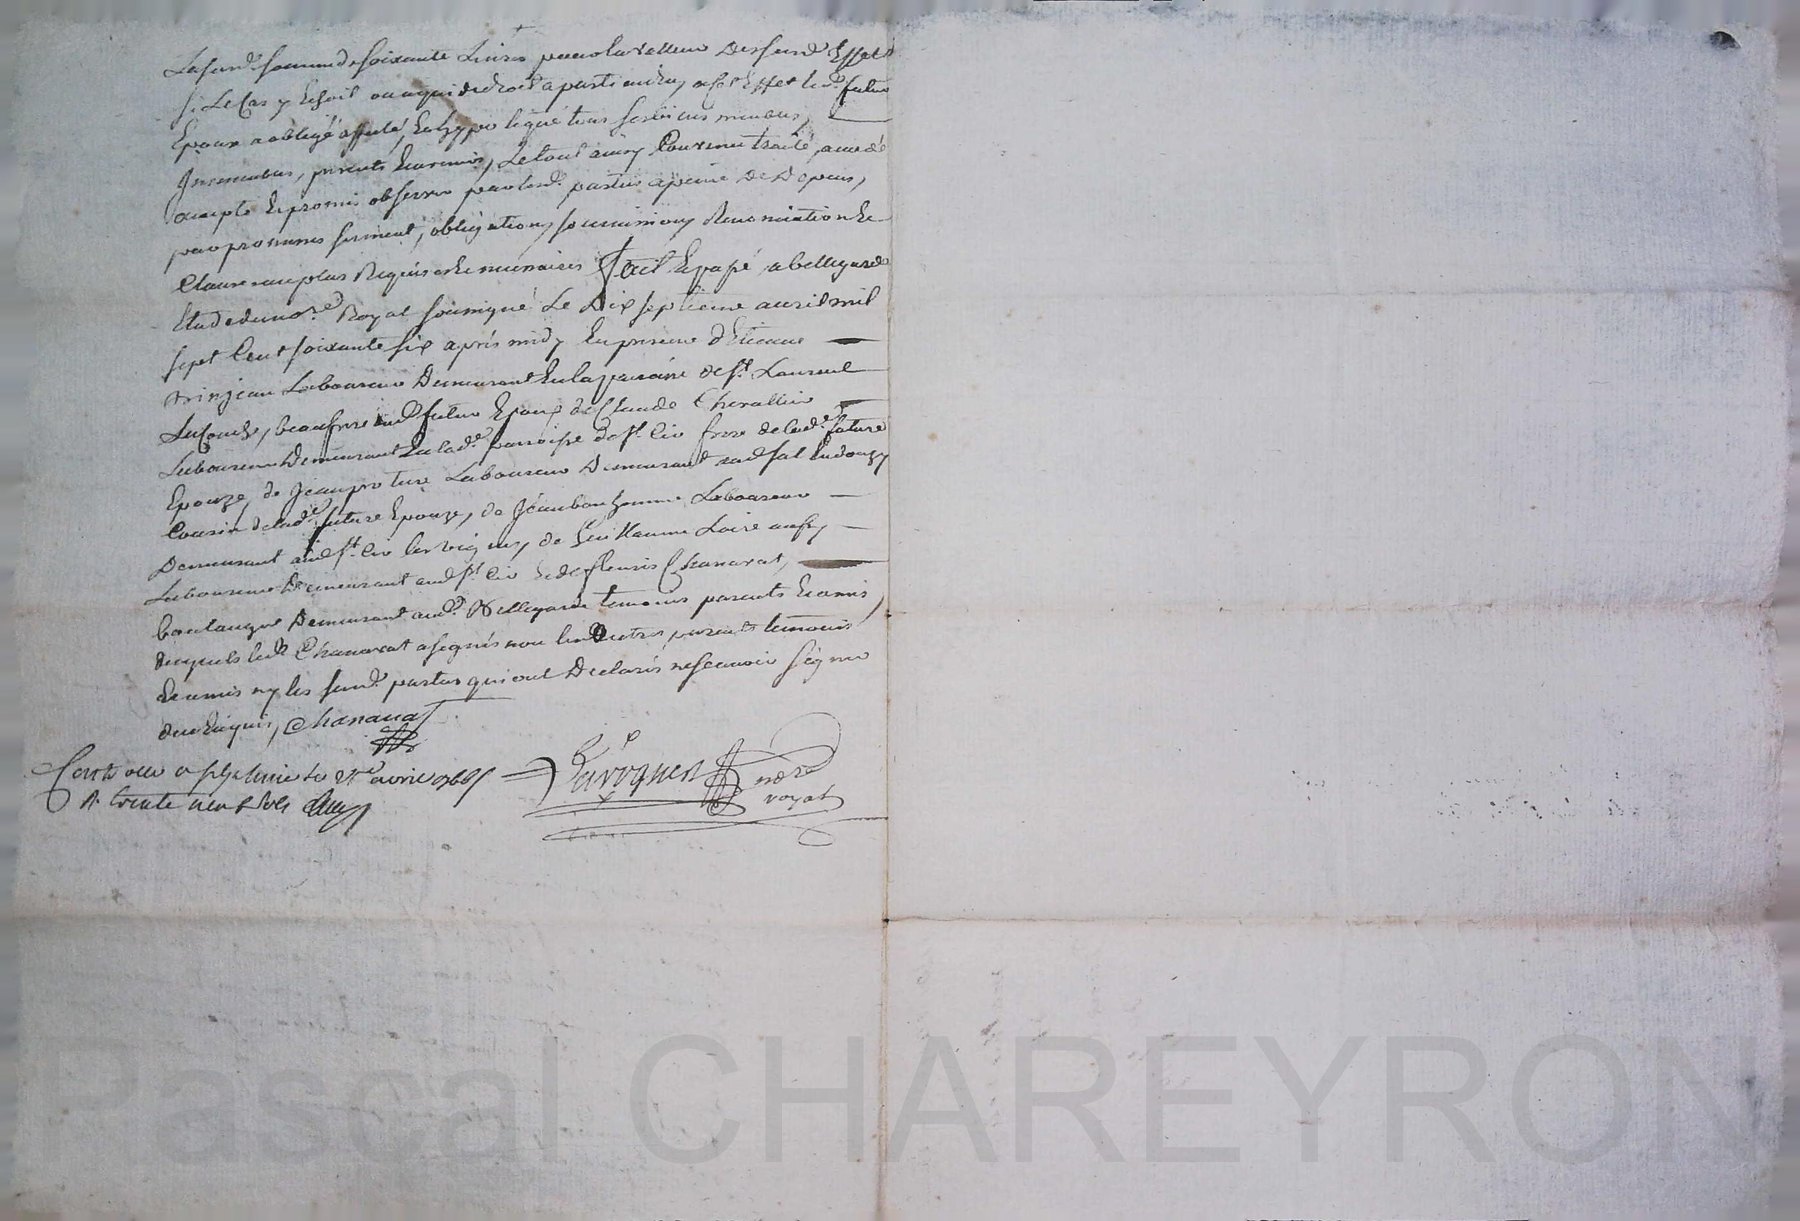 La susd.e somme de soixante Livres pour la valleur Dessusd. Effets
si Le Cas y Echoit ou a qui de droit apartiendra, a cet Effet led. futur
Epoux a obligé affecté, Ethypotequé tous ses biens meubles,
Immeubles, presents Et avenir, Le tout ainsy Convenu traité, accordé
accepté Et promis observer par lesd. parties a peine De Depens,
par promesses serment, obligations, soumissions Renonciation Et
Clauses au plus Requises Et necessaires fait Et passé a bellegarde
Etude du no.re Royal soussigné Le Dix septieme avril mil
sept Cent soixante six aprés midy En presence d'Etienne
Laboureur Demeurant En la paroisse de St. Laurent
La Conche, beaufrere dud. futur Epoux de Claude Chevallier
Laboureur Demeurant En lad.e parroisse de St. Cir frere de lad.e future
Epouze, de Jean Laboureur Demeurant
Cousin de lad.e future Epouze, de Jean bonhomme Laboureur
Demeurant aud. St. Cir les vignes, de Guillaume Loire aussy
Laboureur Demeurant aud. St. Cir Et de fleuris Chanavat,
boulanger Demeurant aud. Bellegarde temoins parents Et amis,
desquels led. Chanavat a signés non les autres parents temoins
Et amis ny les susd. parties qui ont Declarés ne scavoir signer
de ce Enquis, Chanavat
Controllé a St. Galmier le avril 1766
R. trente neuf sols
no.re
royal
Pascal CHAREYRON